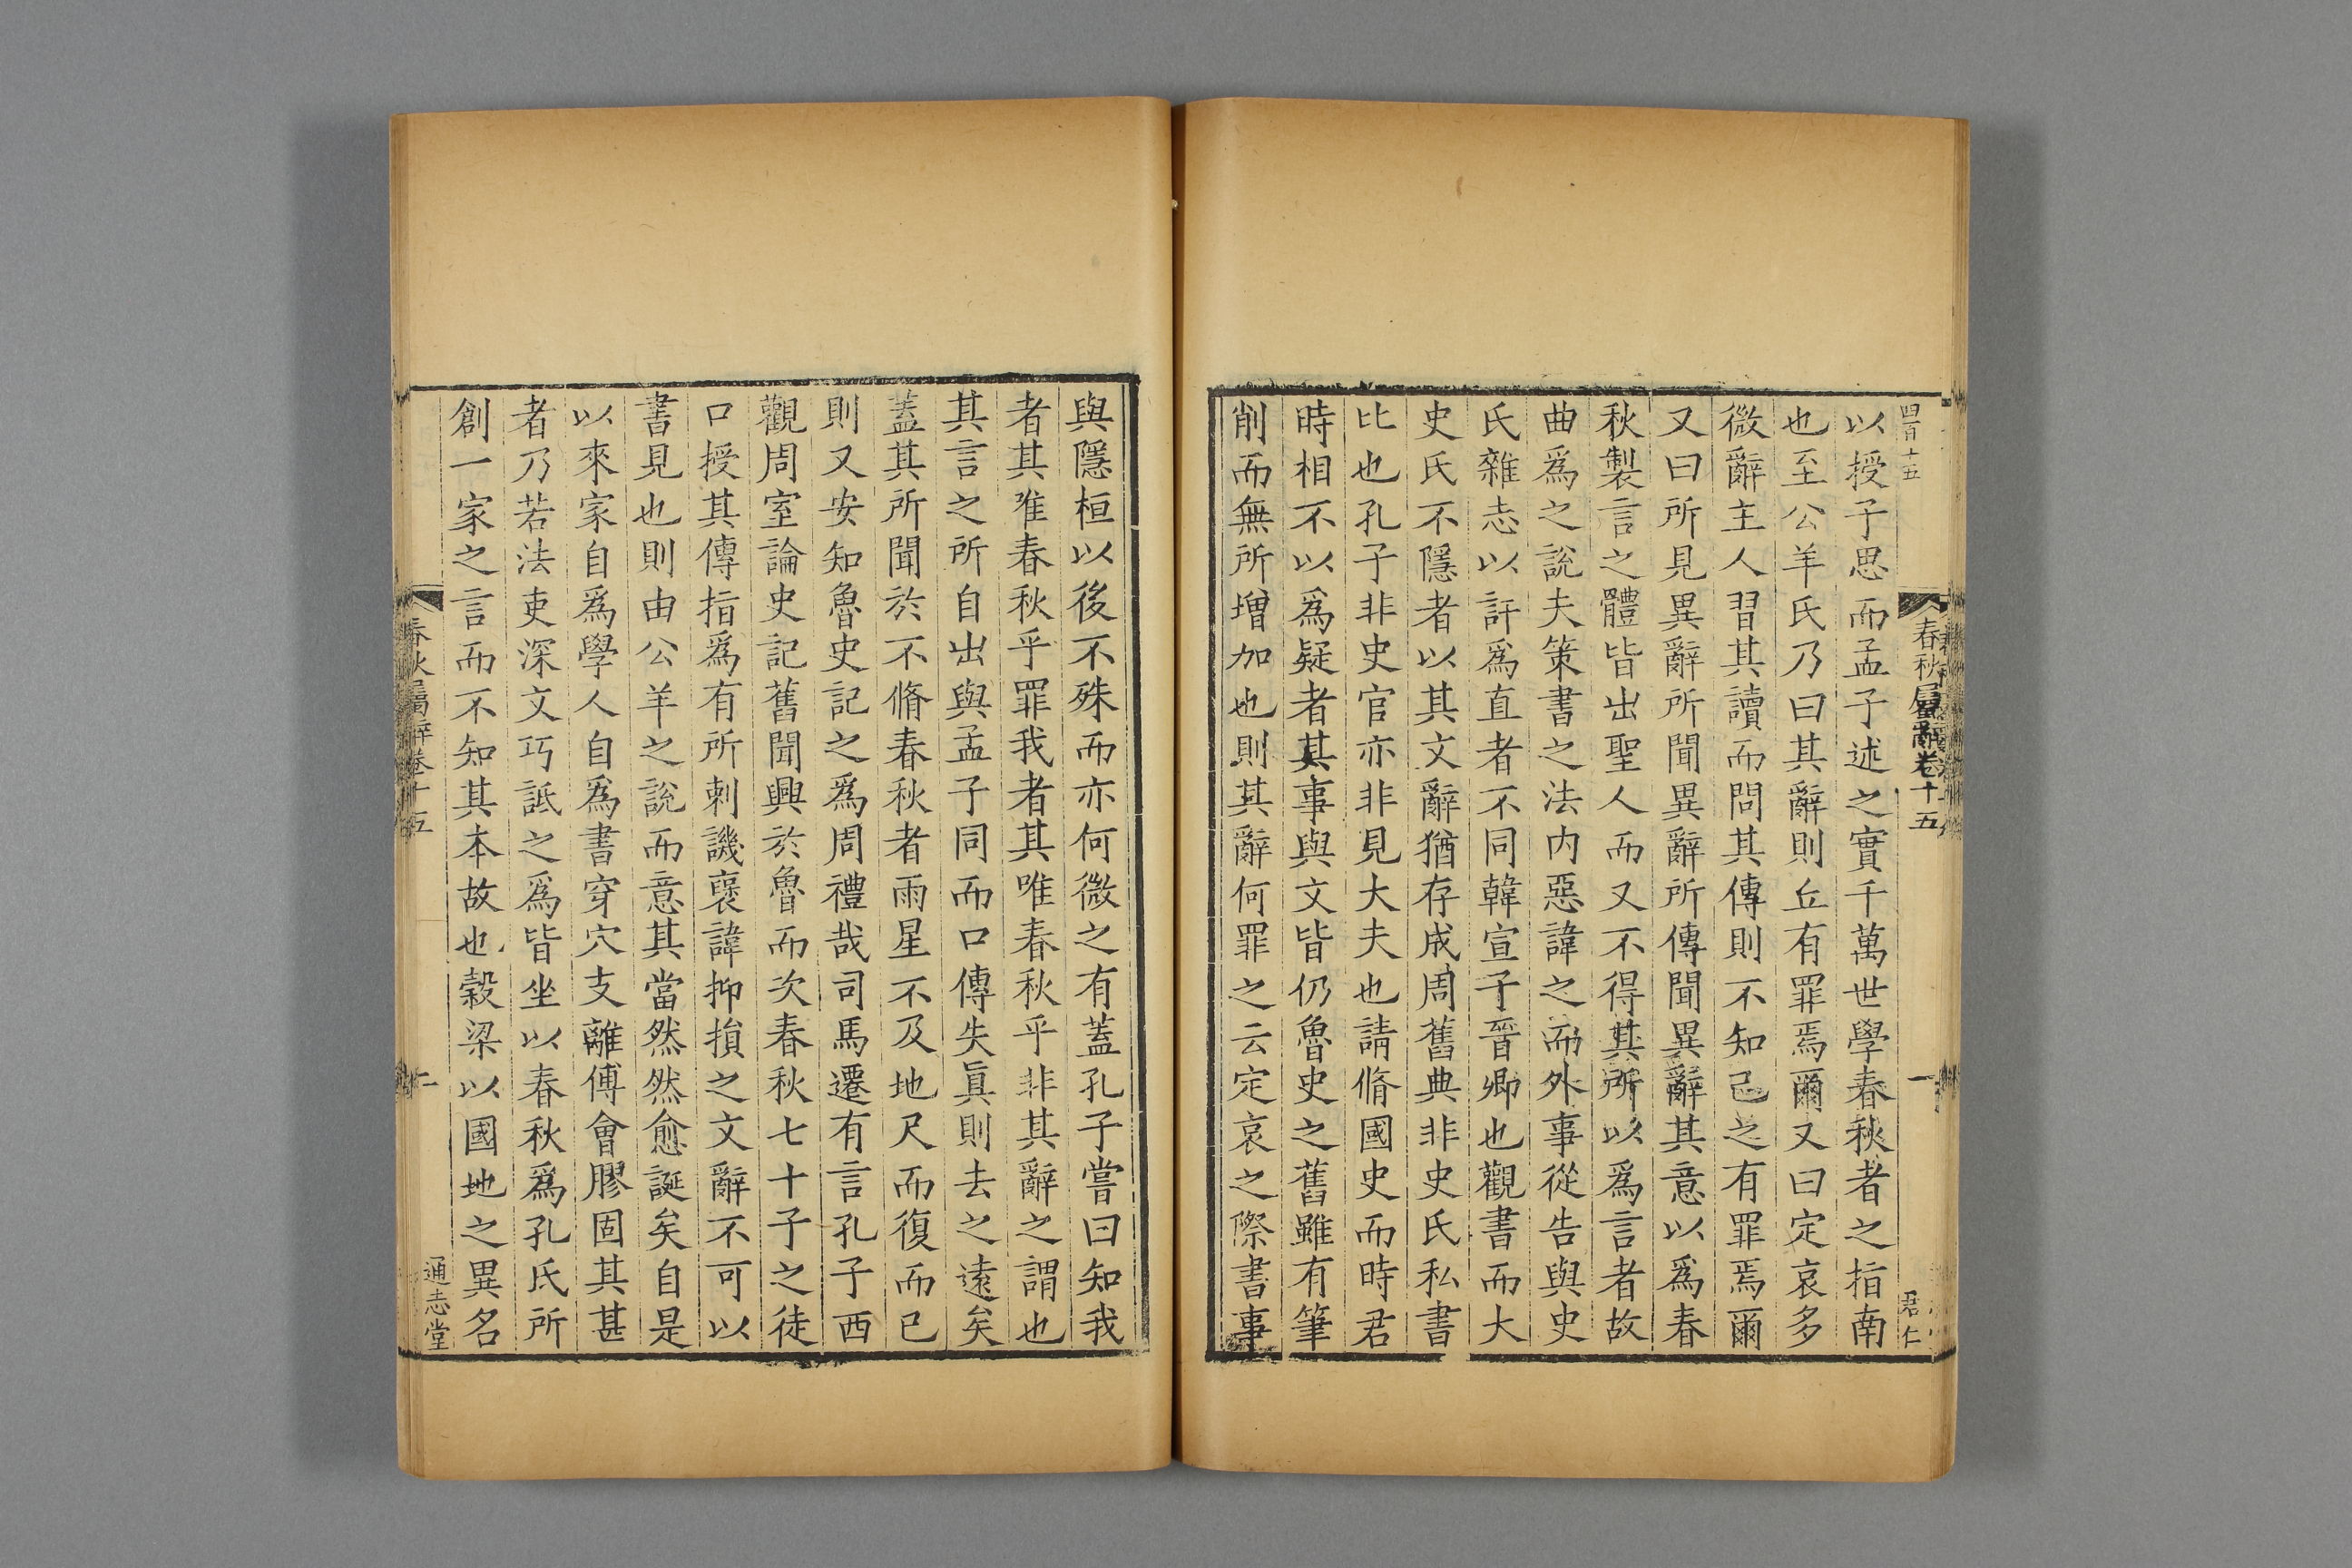 四百十五
春秋屬辭卷十五
一
君仁
以授子思而孟子述之實千萬世學春秋者之指南
也至公羊氏乃曰其辭則丘有罪焉爾又曰定哀多
微辭主人習其讀而問其傳則不知己之有罪焉爾
又曰所見異辭所聞異辭所傳聞異辭其意以爲春
秋製言之體皆出聖人而又不得其所以爲言者故
曲爲之說夫策書之法内惡諱之而外事從告與史
氏雜志以訐爲直者不同韓宣子晉卿也觀書而大
史氏不隱者以其文辭猶存成周舊典非史氏私書
比也孔子非史官亦非見大夫也請脩國史而時君
時相不以爲疑者其事與文皆仍魯史之舊雖有筆
削而無所增加也則其辭何罪之云定哀之際書事
與隱桓以後不殊而亦何微之有蓋孔子嘗曰知我
者其惟春秋乎罪我者其唯春秋乎非其辭之謂也
其言之所自出與孟子同而口傳失眞則去之遠矣
蓋其所聞於不脩春秋者雨星不及地尺而復而已
則又安知魯史記之爲周禮哉司馬遷有言孔子西
觀周室論史記舊聞興於魯而次春秋七十子之徒
口授其傳指爲有所刺譏襃諱抑損之文辭不可以
書見也則由公羊之說而意其當然然愈誕矣自是
以來家自爲學人自爲書穿穴支離傅會膠固其甚
者乃若法吏深文巧詆之爲皆坐以春秋爲孔氏所
創一家之言而不知其本故也穀梁以國地之異名
春秋屬辭卷十五
二
通志堂